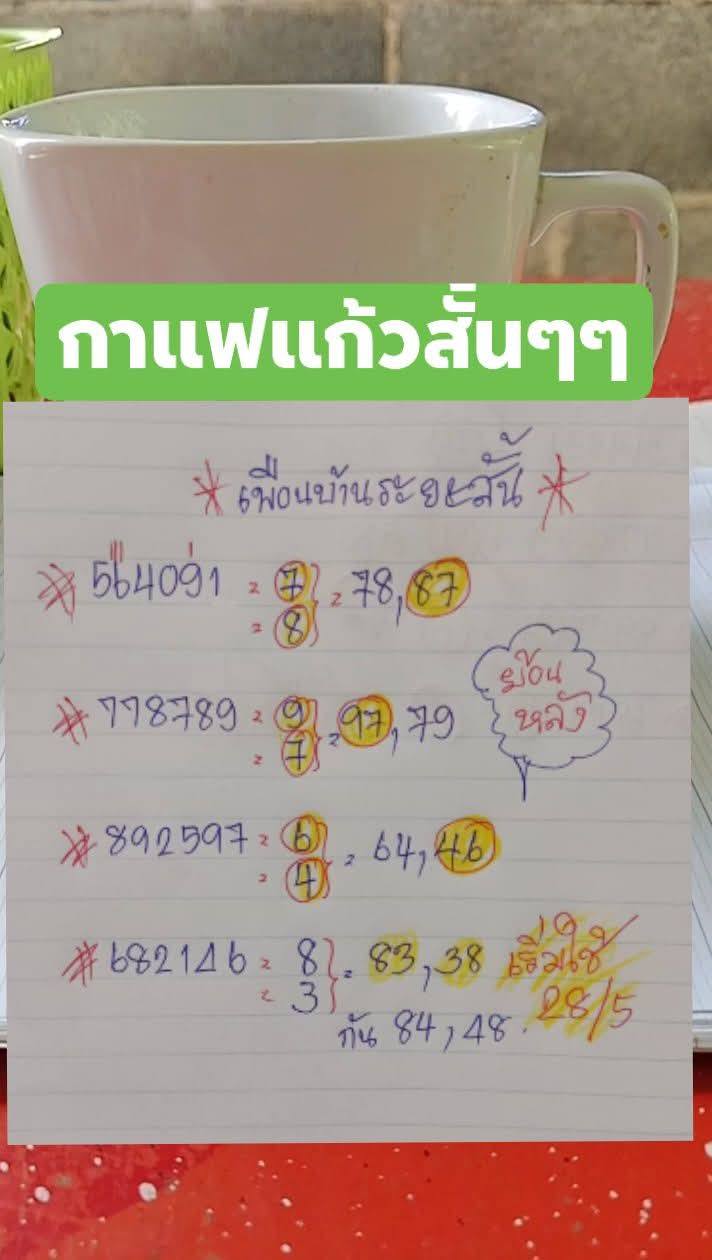 กาแฟแก้วสั้นๆๆ
* เพื่อนบ้านระยะสั้น *
* 564091 = 7 } = 78, 87
= 8
* 778789 = 9 } = 97, 79
= 7
ย้อน
หลัง
* 892597 = 6 } = 64, 46
= 4
* 682146 = 8 } = 83, 38 เริ่มใช้
= 3 28/5
กัน 84, 48.